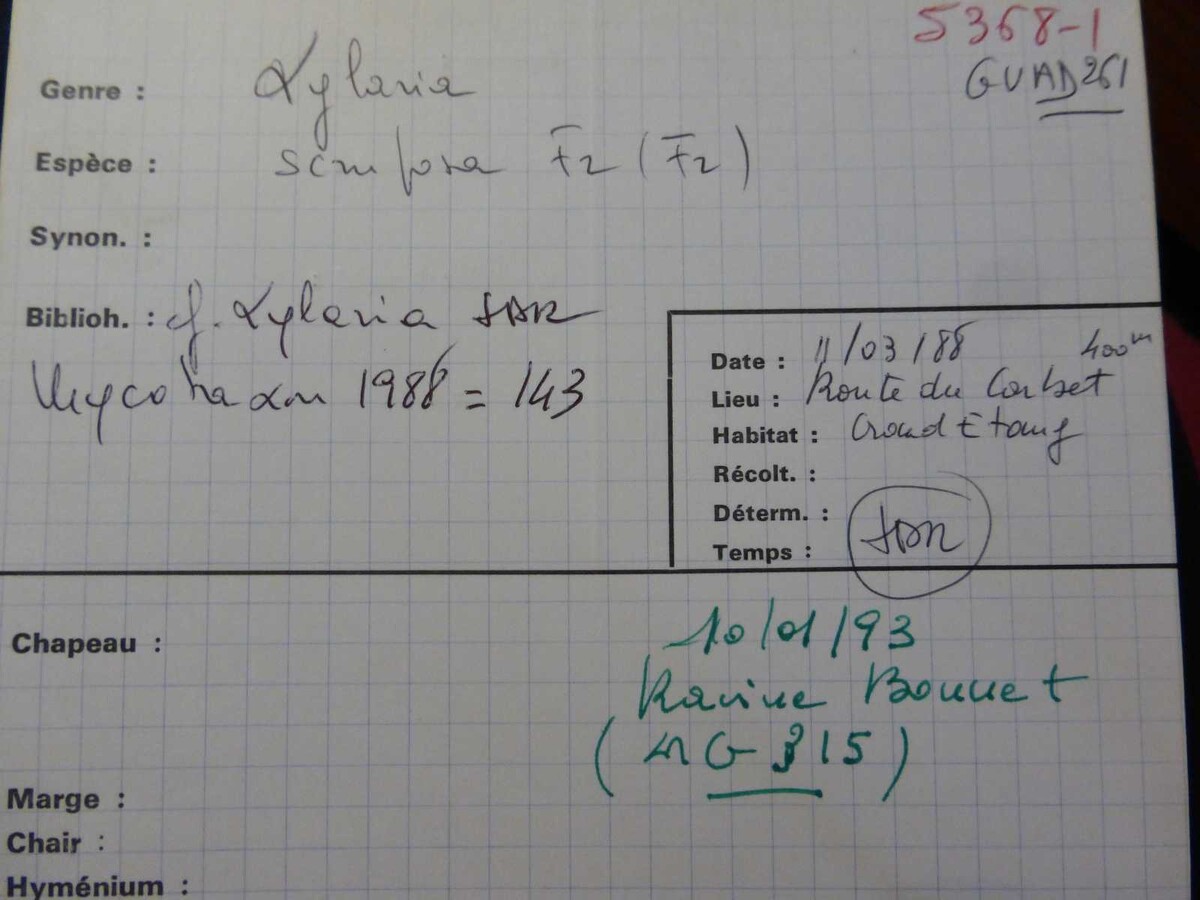 5368-1
GUAD 261
Genre : Xylaria
Espèce : scruposa Fr (Fr)
Synon. :
Biblioh. : cf. Xylaria JDR
Mycotaxon 1988 = 143
Date : 11/03/88 400m
Lieu : Route du Corbet
Habitat : Grand Etang
Récolt. :
Déterm. :
Temps : JDR
Chapeau :
10/01/93
Ravine Bonnet
(MG 315)
Marge :
Chair :
Hyménium :